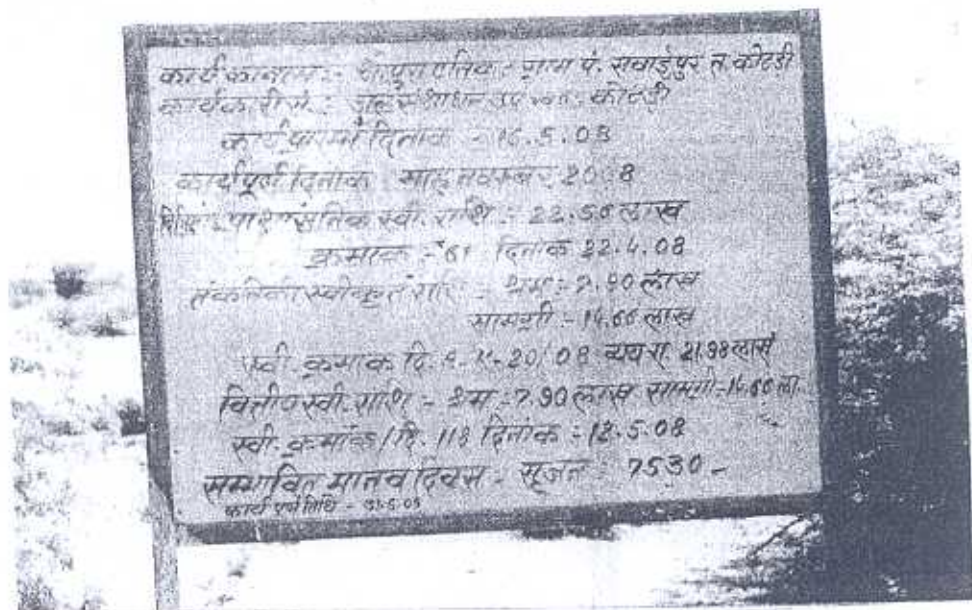 कार्य का नाम :- ग्राम पं. सवाईपुर त. कोटडी
कार्यकारी सं. : जल संशाधन उप खण्ड कोटडी
कार्य प्रारम्भ दिनांक - 16.5.08
कार्य पूर्ण दिनांक माह नवम्बर 2008
स्वी. राशि :- 22.56 लाख
क्रमांक :- 61 दिनांक 22.4.08
तकनिकी स्वीकृत राशि :- श्रम :- 7.90 लाख
सामग्री :- 14.66 लाख
स्वी. क्रमांक दि. 20/08 व्यय रा. 21.98 लाख
वित्तीय स्वी. राशि - श्रम : 7.90 लाख सामग्री - 14.66 ला.
स्वी. क्रमांक / दि. 118 दिनांक :- 12.5.08
सम्भावित मानव दिवस - सृजन : 7530 -
कार्य पूर्ण तिथि -